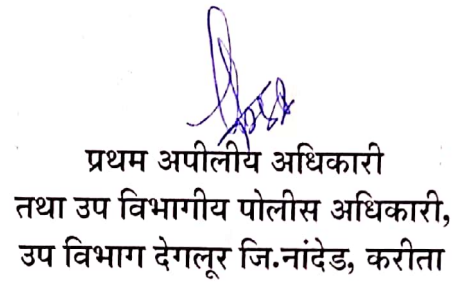 प्रथम अपीलीय अधिकारी
तथा उप विभागीय पोलीस अधिकारी,
उप विभाग देगलूर जि.नांदेड, करीता